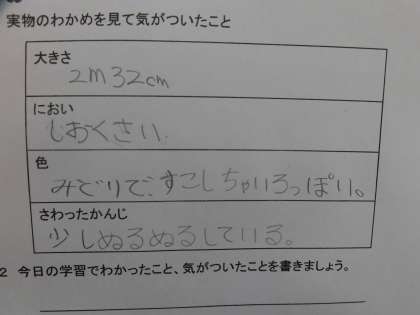 実物のわかめを見て気がついたこと
大きさ
2m32cm
におい
しおくさい.
色
みどりで、すこしちゃいろっぽい。
さわったかんじ
少しぬるぬるしている。
2 今日の学習でわかったこと、気がついたことを書きましょう。